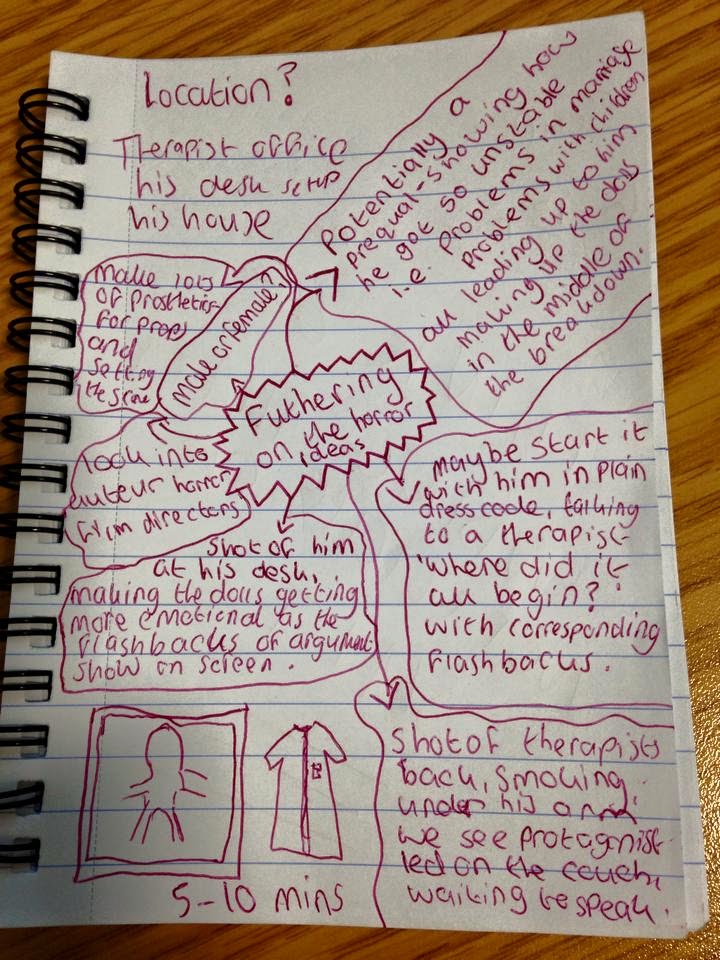 Location?
Therapist office
his desk setup
his house
Potentially a
prequal - showing how
he got so unstable
i.e. Problems in marriage
Problems with children
all leading up to him
making up the dolls
in the middle of
the breakdown.
make lots
of prosthetics
for props
and
setting
the scene
Male or female?
Futhering
on the horror
ideas
look into
auteur horror
film directors
maybe start it
with him in plain
dresscode, talking
to a therapist
'where did it
all begin?'
with corresponding
flashbacks.
Shot of him
at his desk,
making the dolls getting
more emotional as the
flashbacks of argument
show on screen.
Shot of therapists
back, smoking.
under his arm
we see protagonist
led on the couch,
waiting to speak.
5-10 mins